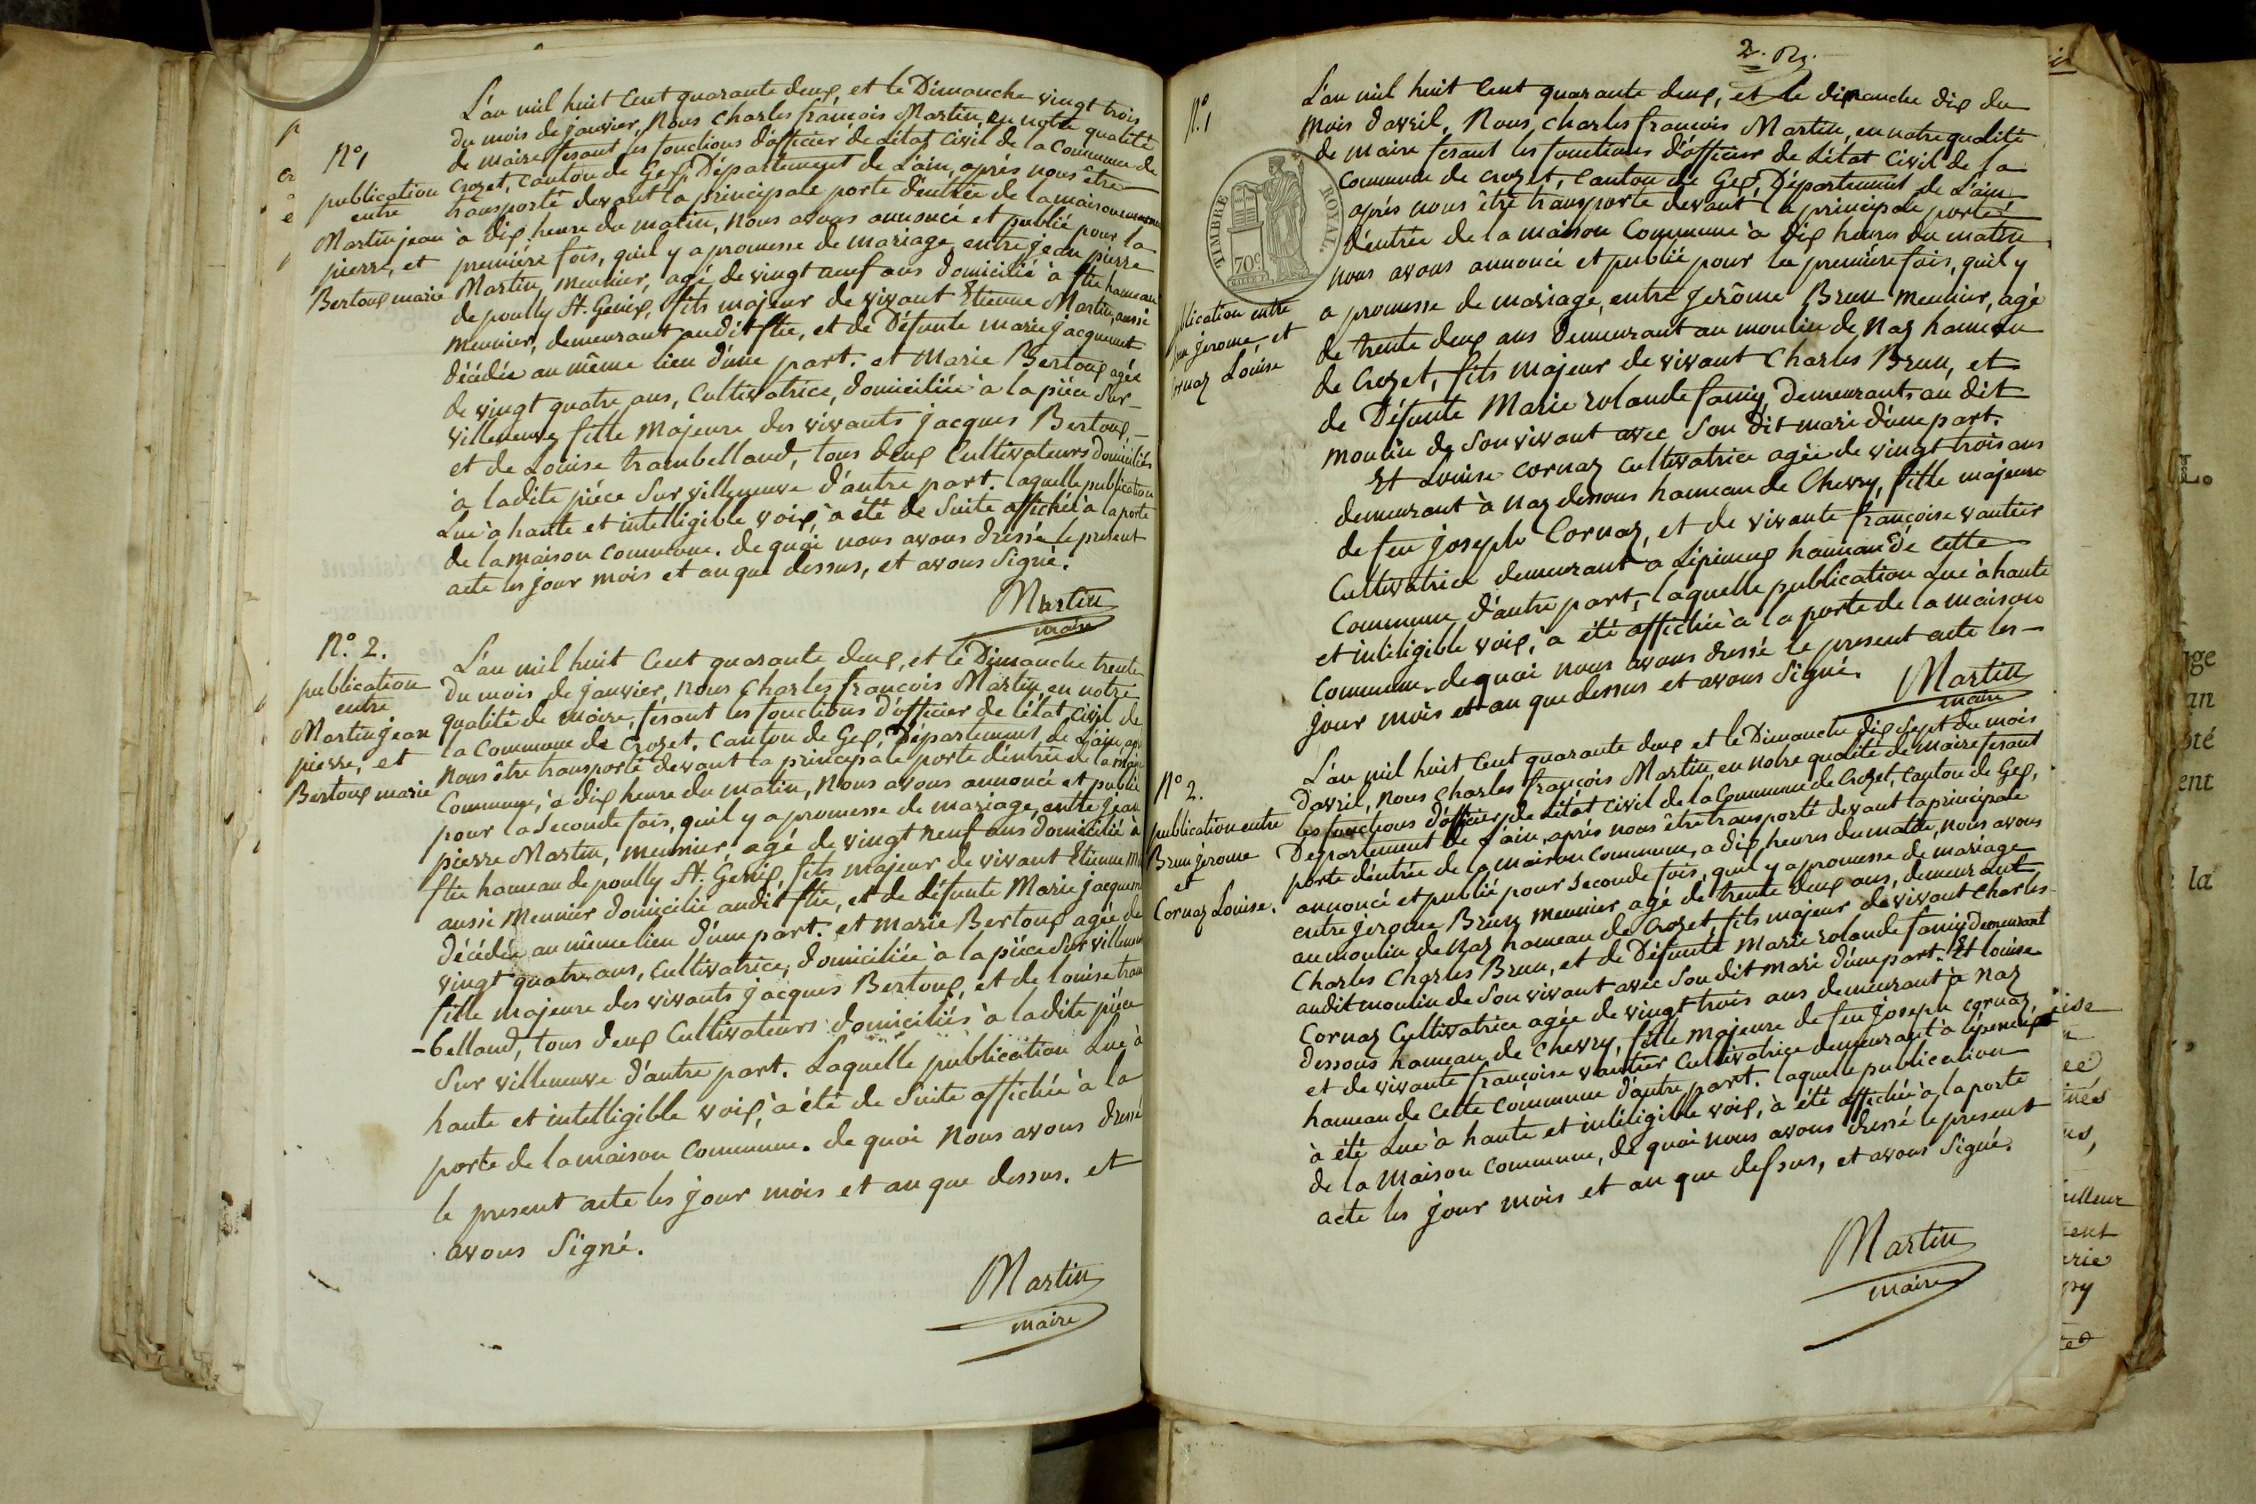 N°1
publication
entre
Martin jean
pierre, et
Bertoux marie
L'an mil huit Cent quarante deux, et le Dimanche vingt trois
du mois de janvier, Nous Charles françois Martin, en notre qualité
de maire fesant les fonctions d'officier de L'état Civil de la Commune de
Crozet, Canton de Gex, Département de L'ain, après nous être
transporté devant la principale porte d'entrée de la maison commune
à dix heure du matin, Nous avons annoncé et publié pour la
première fois, quil y a promesse de mariage entre jean pierre
Martin, Meunier, agé de vingt neuf ans domicilié à flie hameau
de poully St. Genix, fils majeur de vivant Etienne Martin, aussi
Meunier, demeurant audit flie, et de Défunte marie jacquemet
décédée au même lieu d'une part. et Marie Bertoux agée
de vingt quatre ans, Cultivatrice, domiciliée à la pièce Sur-
villeneuve fille Majeure des vivants jacques Bertoux,
et de Louise trambelland, tous deux Cultivateurs Domiciliés
à ladite pièce Sur villeneuve d'autre part. laquelle publication
Lue à haute et intelligible voix, à été de Suite affichée à la porte
de la maison Commune. de quoi nous avons dressé le present
acte les jour mois et an que dessus, et avons Signé.
Martin
maire
N°. 2.
publication
entre
Martin jean
pierre, et
Bertoux marie
L'an mil huit Cent quarante deux, et le Dimanche trente
du mois de janvier, Nous Charles françois Martin, en notre
qualité de maire, fésant les fonctions d'officier de l'état Civil de
la Commune de Crozet, Canton de Gex, Département de L'ain, apr
Nous être transporté devant la principale porte d'entrée de la mai
Commune, à dix heure du matin, Nous avons annoncé et publié
pour la seconde fois, quil y a promesse de mariage, entre jean
pierre Martin, meunier, agé de vingt neuf ans domicilié à
flie hameau de poully St. Genix, fils majeur de vivant Etienne Ma
aussi Meunier domicilié audit flie, et de défunte Marie jacquem
décédée au même lieu d'une part. et Marie Bertoux agée de
vingt quatre ans, Cultivatrice, domiciliée à la pièce Sur villeneuv
fille majeure des vivants jacques Bertoux, et de Louise tram
-belland, tous deux Cultivateurs domiciliés à ladite pièce
Sur villeneuve d'autre part. Laquelle publication Lue à
haute et intelligible voix, à été de Suite affichée à la
porte de la maison Commune. de quoi Nous avons dressé
le present acte les jour mois et an que dessus. et
avons Signé.
Martin
maire
2.
N°1
TIMBRE ROYAL
70c
plication entre
jérome, et
Cornaz Louise
L'an mil huit Cent quarante deux, et le dimanche dix du
mois d'avril, Nous Charles françois Martin, en notre qualité
de maire fesant les fonctions d'officier de L'état Civil de la
Commune de crozet, Canton de Gex, Département de L'ain
après nous être transporté devant la principale porte
d'entrée de la maison Commune à dix heures du matin
nous avons annoncé et publié pour la première fois, quil y
a promesse de mariage, entre jerôme Brun meunier, agé
de trente deux ans demeurant au moulin de Naz hameau
de Crozet, fils majeur de vivant Charles Brun, et
de Défunte Marie rolande famy, demeurants au dit
moulin de Son vivant avec Son dit mari d'une part.
Et Louise Cornaz Cultivatrice agée de vingt trois ans
demeurant à Naz dessous hameau de Chevry, fille majeure
de feu joseph Cornaz, et de vivante françoise vautier
Cultivatrice demeurant à L'épineux hameau de cette
Commune d'autre part, laquelle publication Lue à haute
et inteligible voix, à été affichée à la porte de la maison
Commune. de quoi nous avons dressé le present acte les
jour mois et an que dessus et avons Signé.
Martin
maire
N° 2.
publication entre
Brun jérome
et
Cornaz Louise.
L'an mil huit Cent quarante deux et le Dimanche dix Sept du mois
D'avril, nous Charles françois Martin, en notre qualité de maire fesant
les fonctions d'officier de L'état Civil de la Commune de Crozet, Canton de Gex,
Département de L'ain, après nous être transporté devant la principale
porte d'entrée de la maison commune, a dix heures du matin, nous avons
annoncé et publié pour seconde fois, quil y a promesse de mariage
entre jerome Brun meunier agé de trente deux ans, demeurant
au moulin de Naz hameau de Crozet, fils majeur de vivant Charles
Charles Charles Brun, et de Défunte Marie rolande famy demeurant
audit moulin de Son vivant avec Son dit mari d'une part. Et Louise
Cornaz Cultivatrice agée de vingt trois ans demeurant à Naz
dessous hameau de Chevry, fille majeure de feu joseph cornaz,
et de vivante françoise vautier Cultivatrice demeurant à lépeneux
hameau de Cette Commune d'autre part. laquelle publication
à été Lue à haute et intéligible voix, à été affichée à la porte
de la Maison Commune, de quoi nous avons dressé le present
acte les jour mois et an que dessus, et avons Signé.
Martin
maire